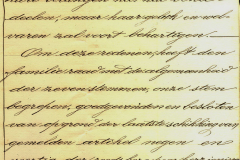 doelen, maar haar geluk en wel-
varen zal voort behartigen.
Om deze redenen, heeft den
familieraad met de algemeenheid
der zeven stemmen, onze stem
begrepen, goedgevonden en besloten
van op grond der laatste schikking van
gemelden artikel negen en